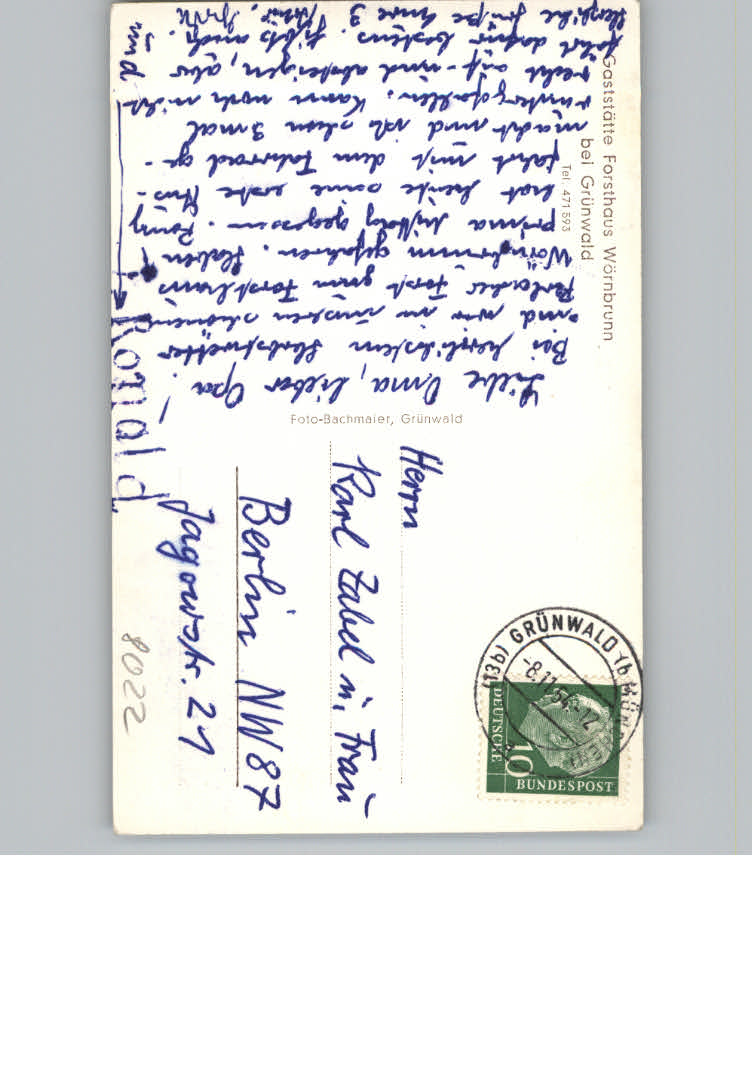 Gaststätte Forsthaus Wörnbrunn
bei Grünwald
Tel. 471 593
Liebe Oma, lieber Opa!
Bei herrlichstem Herbstwetter
sind wir in unseren schönen
Perlacher Forst zum Forsthaus
Wörnbrunn gefahren. Haben
prima Mittag gegessen. Ronny
hat heute seine erste Aus-
fahrt mit dem Fahrrad ge-
macht und ist schon 3 mal
runtergefallen. Kann noch nicht
recht auf- und absteigen, aber
fährt dafür bestens. gibts auch.
Herzliche Grüße Eure 3
und
Ronald
Foto-Bachmaier, Grünwald
Herrn
Karl Zabel u. Frau
Berlin NW 87
Jagowstr. 21
8022
(13b) GRÜNWALD (b MÜNCHEN)
-8.11.54.-12
DEUTSCHE
10
BUNDESPOST